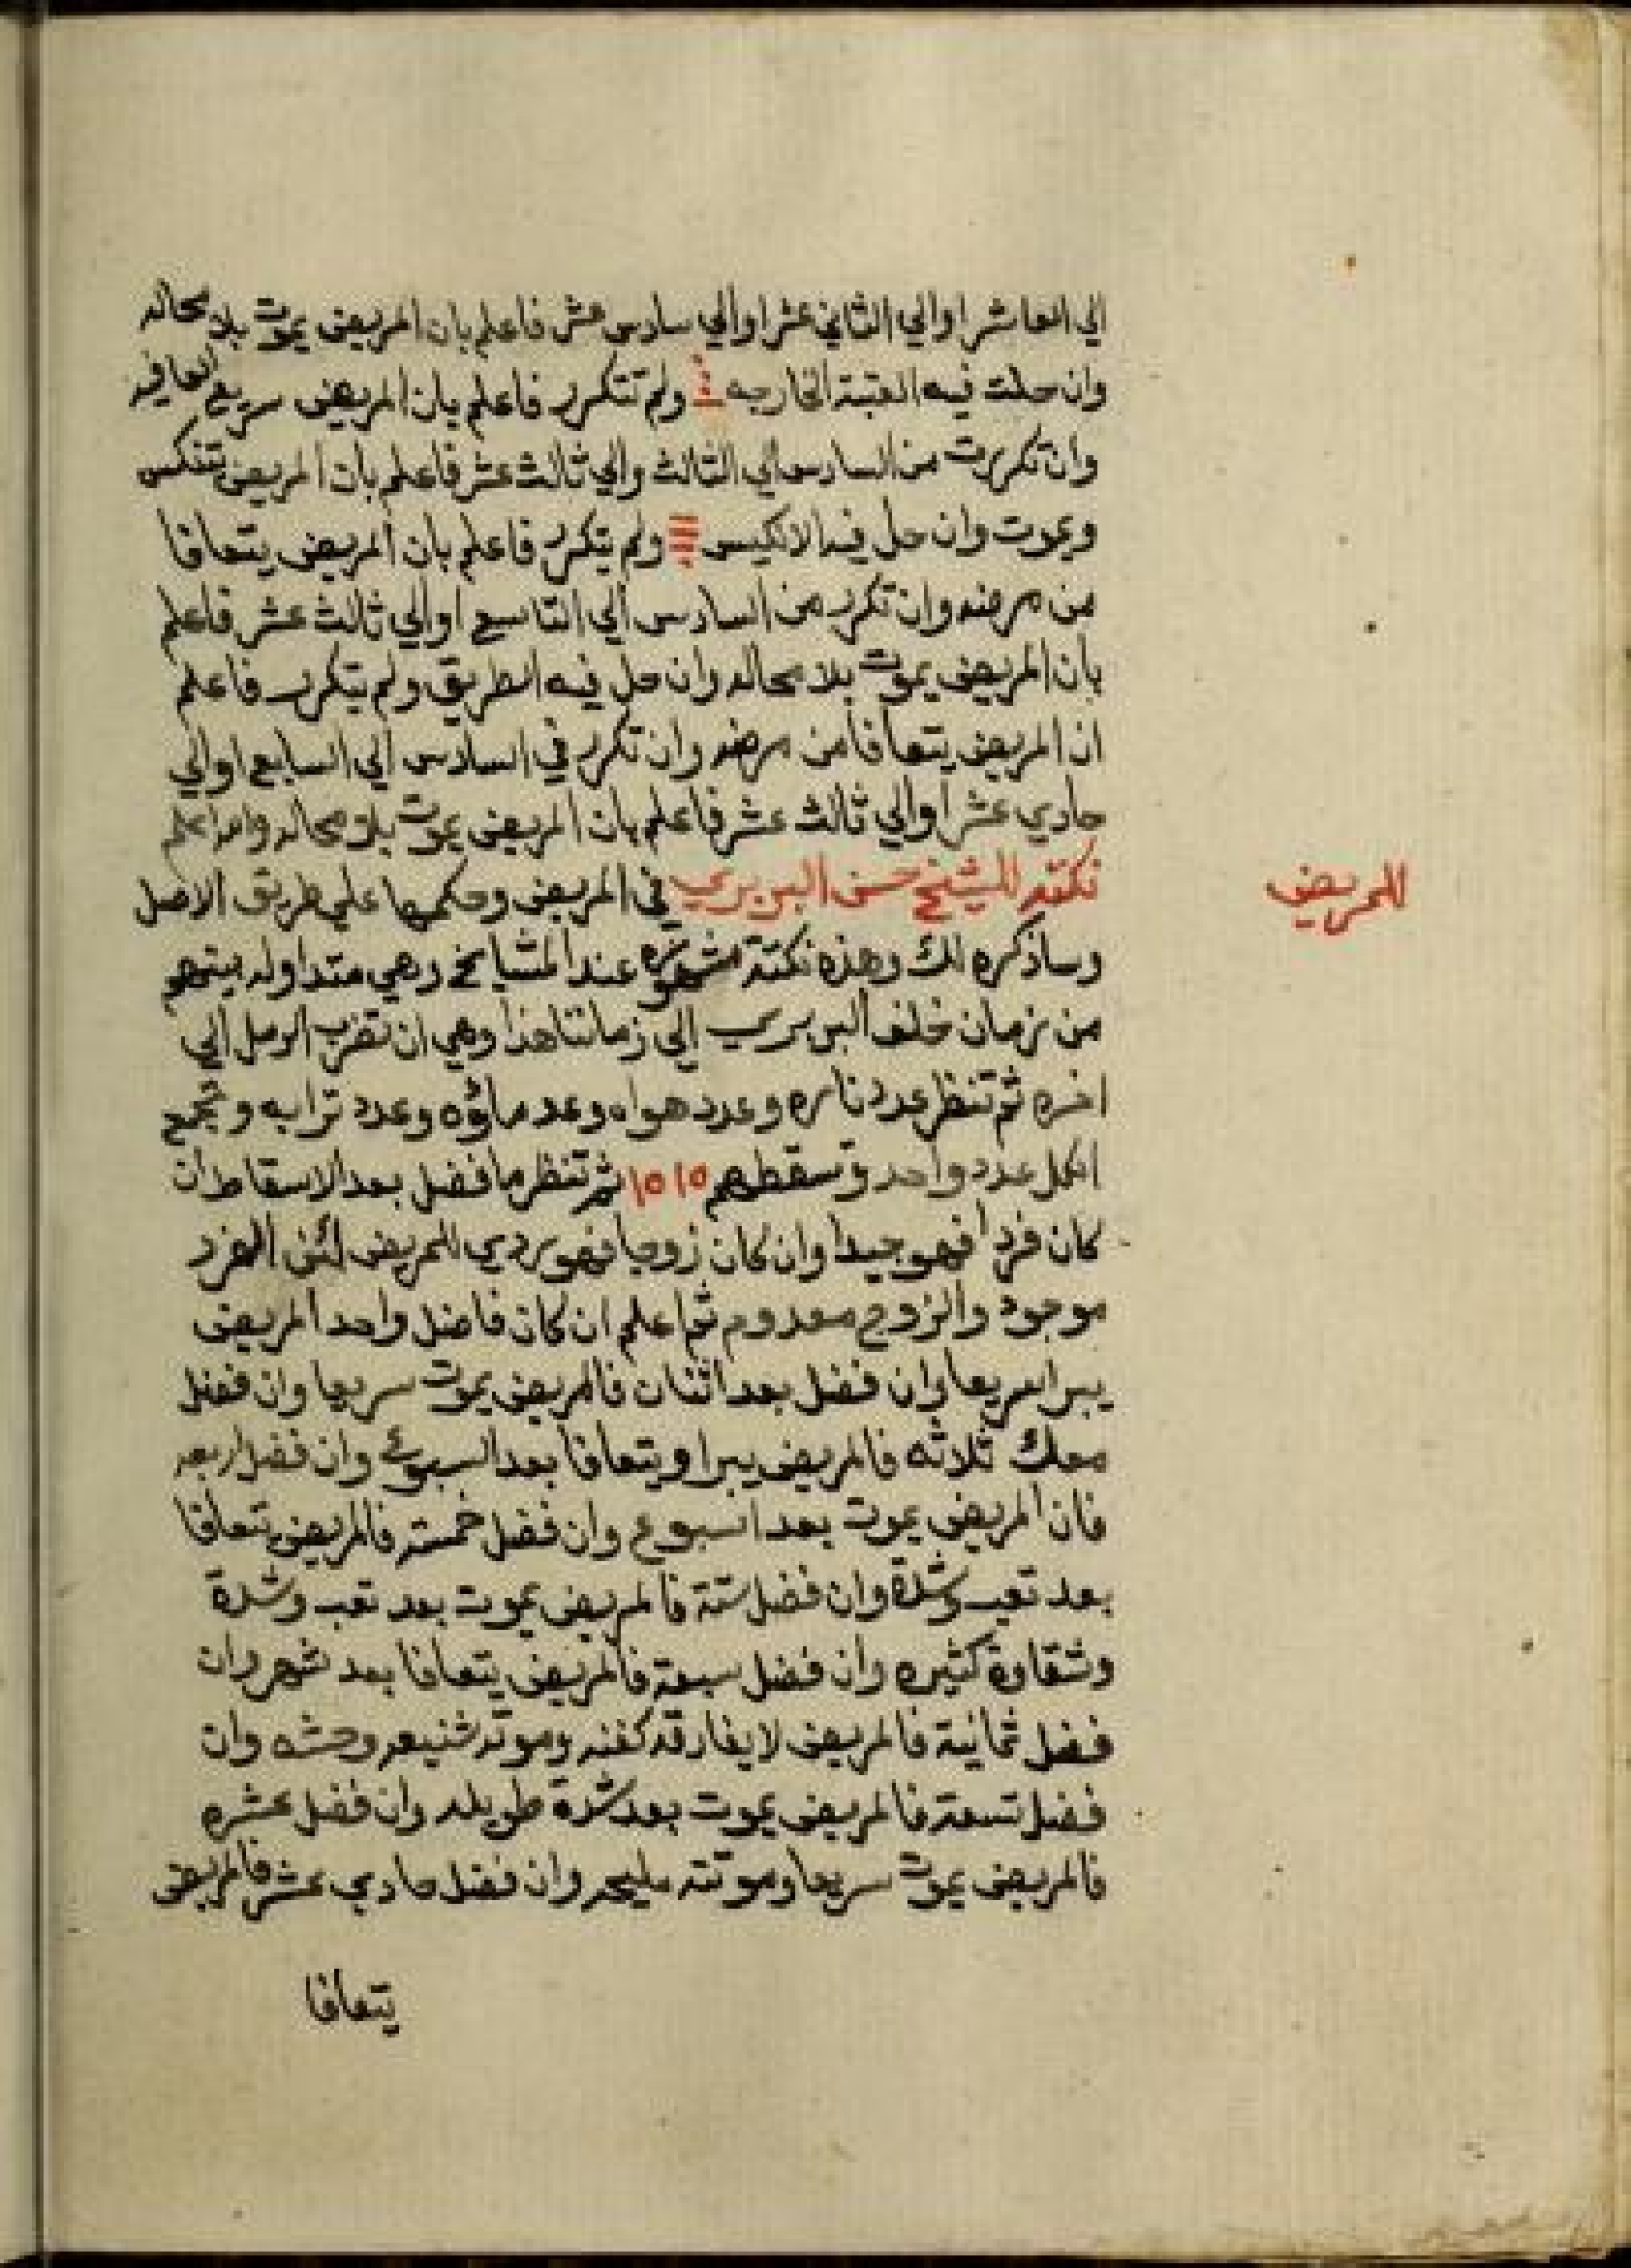 الي العاشر اوالي الثاني عشر اوالي سادس عشر فاعلم بان المريض يموت بلا محاله
وان حلت فيه العتبة الخارجه ولم تتكرر فاعلم بان المريض سريع العافيه
وان تكررت من السادس الي الثالث والي ثالث عشر فاعلم بان المريض تنكس
ويموت وان حل فيه الانكيس ولم يتكرر فاعلم بان المريض يتعافا
من مرضه وان تكرر من السادس الي التاسع اوالي ثالث عشر فاعلم
بان المريض يموت بلا محاله وان حل فيه الطريق ولم يتكرر فاعلم
ان المريض يتعافا من مرضه وان تكرر في السادس الي السابع اوالي
حادي عشر اوالي ثالث عشر فاعلم بان المريض يموت بلا محاله والله اعلم
للمريض
نكته للشيخ حسن البربري في المريض وحكمها علي طريق الاصل
وساذكره لك وهذه نكتة مشهوره عند المشايخ وهي متداوله بينهم
من زمان خلف البربري الي زماننا هذا وهي ان تضرب الرمل الي
اخره ثم تنظر عدد ناره وعدد هواه وعدد ماؤه وعدد ترابه وتجمع
الكل عدد واحد وتسقطهم ١٥١٥ ثم تنظر ما فضل بعد الاسقاط ان
كان فردا فهو جيدا وان كان زوجا فهو ردي للمريض لئن الفرد
موجود والزوج معدوم ثم اعلم ان كان فاضل واحد المريض
يبرا سريعا وان فضل بعد اثنان فالمريض يموت سريعا وان فضل
معك ثلاثه فالمريض يبرا ويتعافا بعد اسبوع وان فضل اربعه
فان المريض يموت بعد اسبوع وان فضل خمسة فالمريض يتعافا
بعد تعب وشدة وان فضل ستة فالمريض يموت بعد تعب وشدة
وشقاوة كثيره وان فضل سبعة فالمريض يتعافا بعد شهر وان
فضل ثمانية فالمريض لا يفارقه كفنه وموته شنيعه وحشه وان
فضل تسعة فالمريض يموت بعد شدة طويله وان فضل عشره
فالمريض يموت سريعا وموتته مليحه وان فضل حادي عشر فالمريض
يتعافا